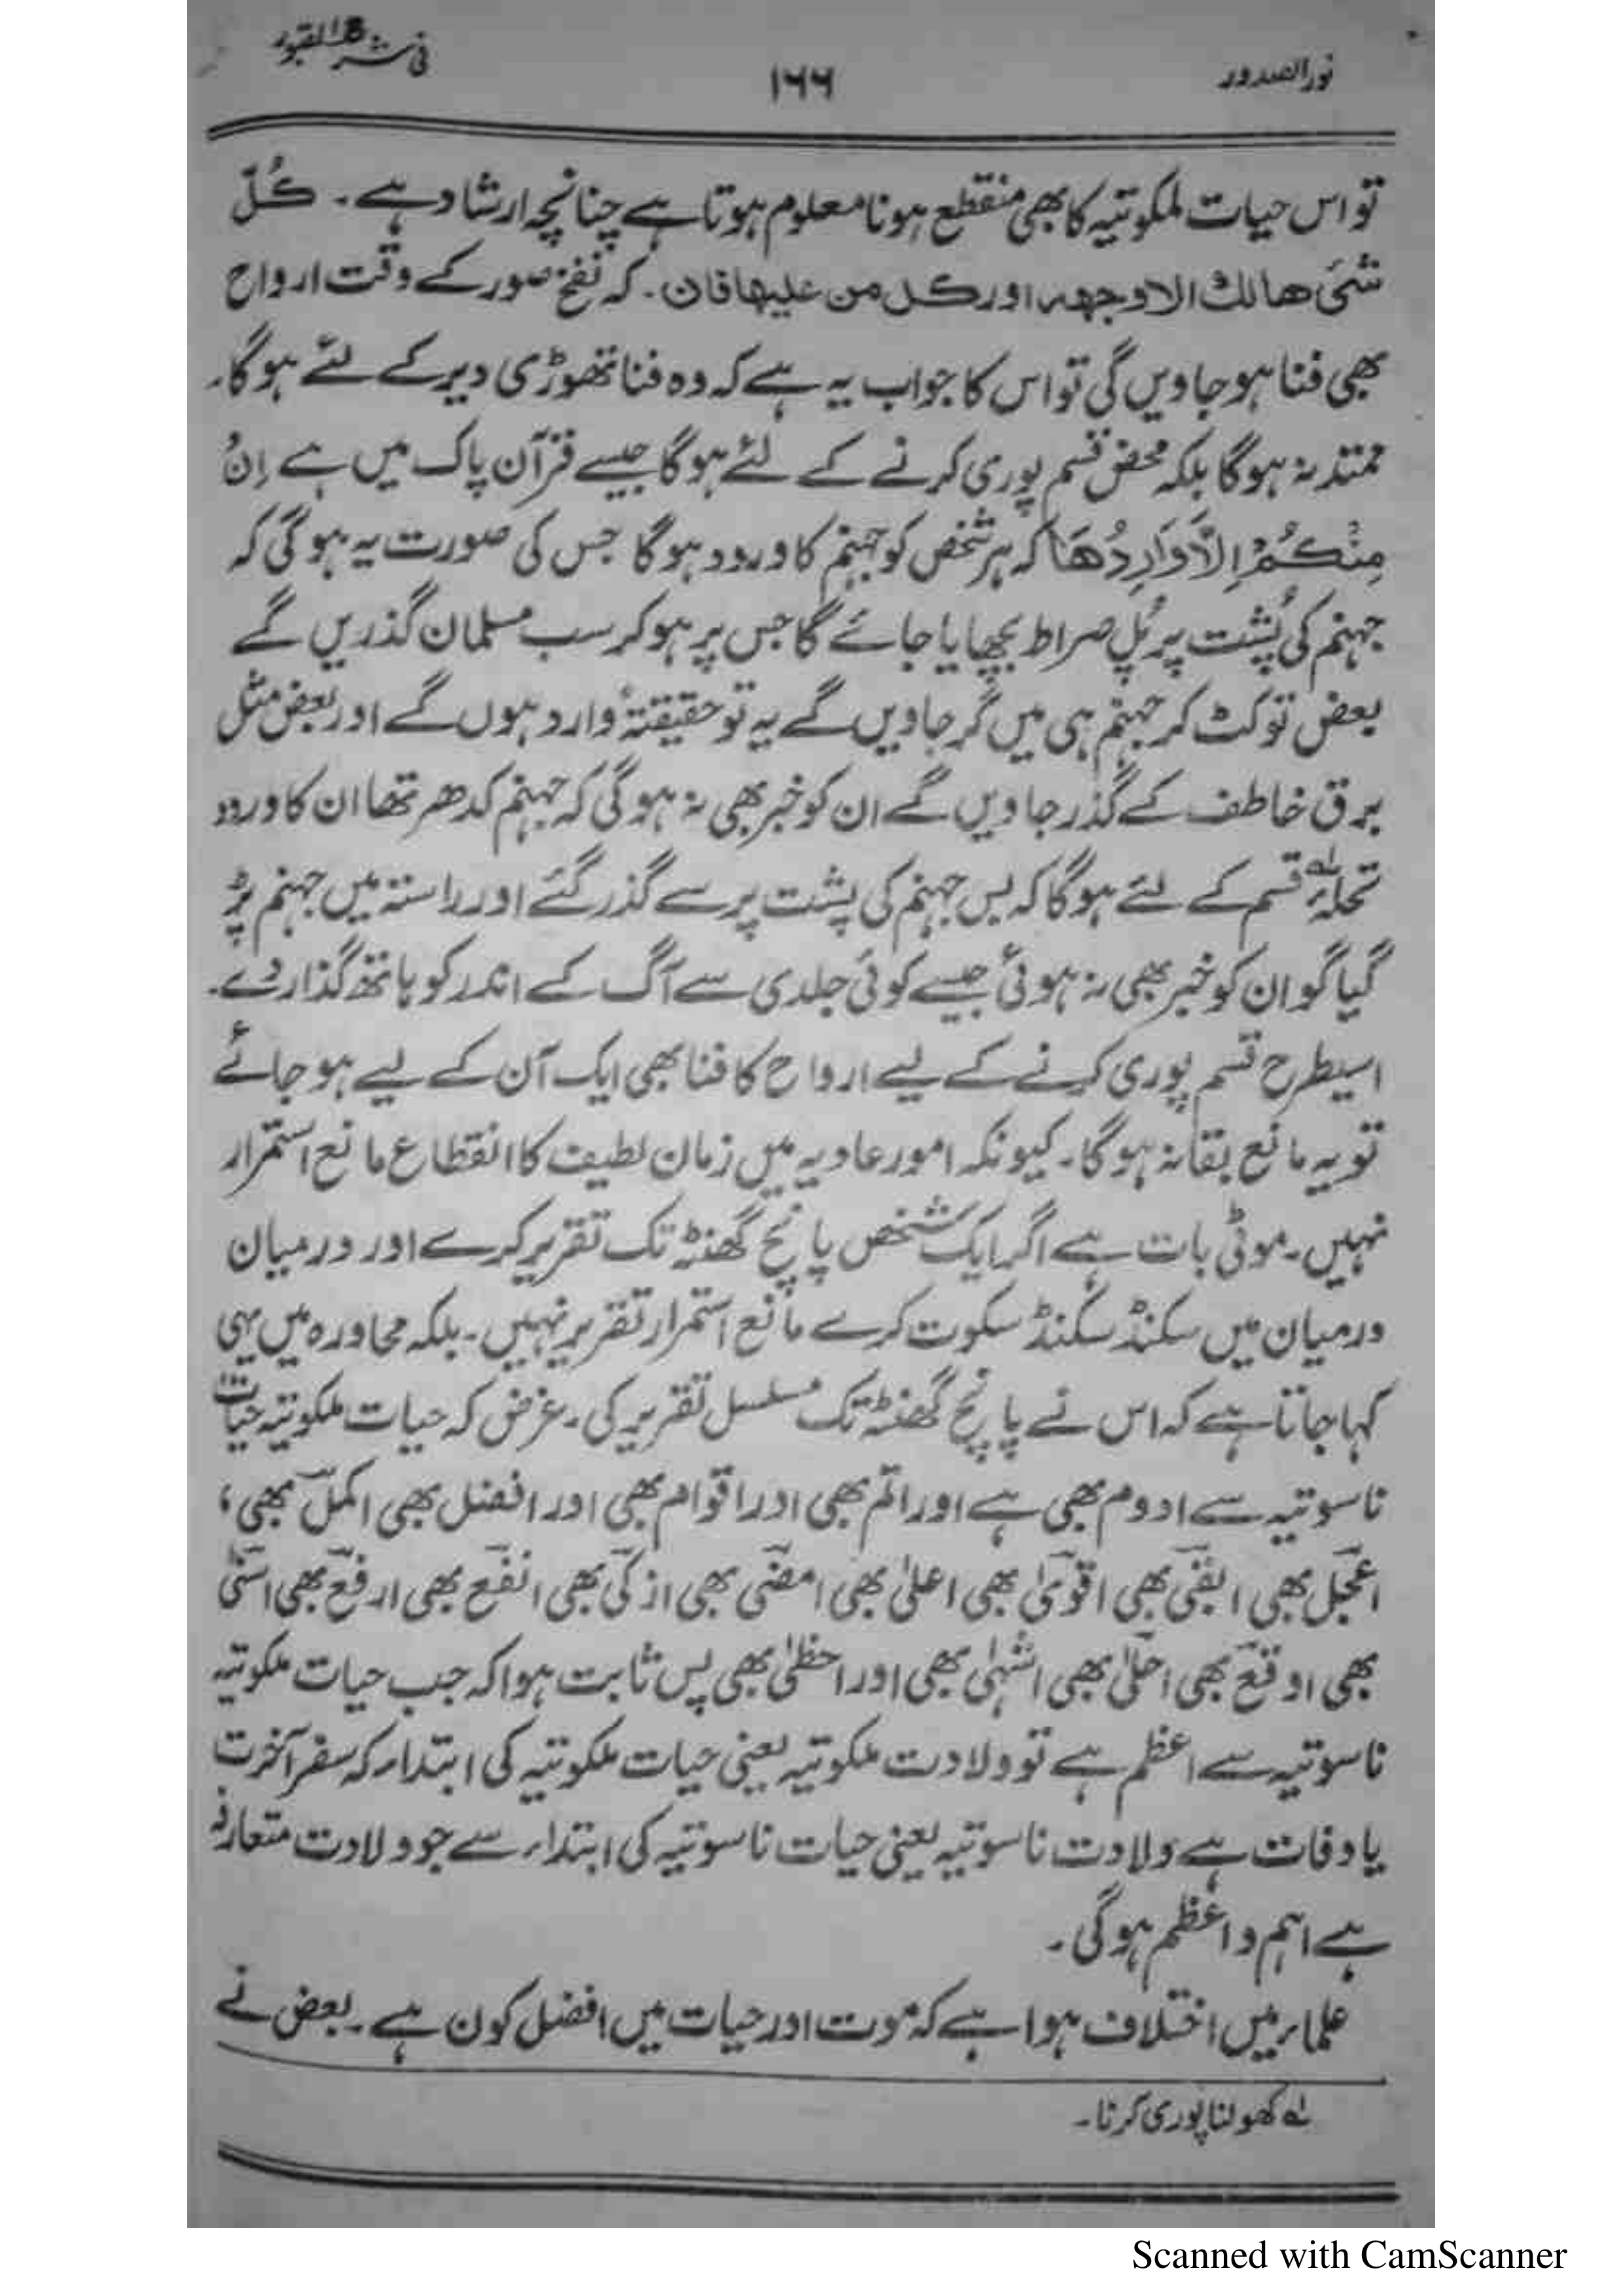 نور الصدور
۱۶۶
فی شرح القبور
تو اس حیات ملکوتیہ کا بھی منقطع ہونا معلوم ہوتا ہے چنانچہ ارشاد ہے۔ کُلّ
شئ ھالك الا وجهه اور كل من عليها فان۔ کہ نفخ صور کے وقت ارواح
بھی فنا ہو جاویں گی تو اس کا جواب یہ ہے کہ وہ فنا تھوڑی دیر کے لئے ہوگا۔
ممتد نہ ہوگا بلکہ محض قسم پوری کرنے کے لئے ہوگا جیسے قرآن پاک میں ہے اِنْ
مِنْكُمْ اِلَّا وَارِدُهَا کہ ہر شخص کو جہنم کا ورود ہوگا جس کی صورت یہ ہوگی کہ
جہنم کی پُشت پر پُل صراط بچھایا جائے گا جس پر ہو کر سب مسلمان گذریں گے
بعض تو کٹ کر جہنم ہی میں گر جاویں گے یہ تو حقیقۃً وارد ہوں گے اور بعض مثل
برق خاطف کے گذر جاویں گے ان کو خبر بھی نہ ہوگی کہ جہنم کدھر تھا ان کا ورود
تحلۂ لہ قسم کے لئے ہوگا کہ بس جہنم کی پشت پر سے گذر گئے اور راستہ میں جہنم پڑ
گیا گو ان کو خبر بھی نہ ہوئی جیسے کوئی جلدی سے آگ کے اندر کو ہاتھ گذار دے۔
اسیطرح قسم پوری کرنے کے لیے ارواح کا فنا بھی ایک آن کے لیے ہو جائے
تو یہ مانع بقا نہ ہوگا۔ کیونکہ امور عادیہ میں زمان لطیف کا انقطاع مانع استمرار
نہیں۔ موٹی بات ہے اگر ایک شخص پانچ گھنٹہ تک تقریر کرے اور درمیان
درمیان میں سکنڈ سکنڈ سکوت کرے مانع استمرار تقریر نہیں۔ بلکہ محاورہ میں یہی
کہا جاتا ہے کہ اس نے پانچ گھنٹہ تک مسلسل تقریر کی۔ غرض کہ حیات ملکوتیہ حیات
ناسوتیہ سے ادوم بھی ہے اور اتم بھی اور اقوام بھی اور افضل بھی اکمل بھی،
اعجل بھی ابقیٰ بھی اقویٰ بھی اعلیٰ بھی امضیٰ بھی ازکیٰ بھی انفع بھی ارفع بھی اسنیٰ
بھی اوقع بھی احلیٰ بھی اشہیٰ بھی اور احظیٰ بھی پس ثابت ہوا کہ جب حیات ملکوتیہ
ناسوتیہ سے اعظم ہے تو ولادت ملکوتیہ یعنی حیات ملکوتیہ کی ابتداء کہ سفر آخرت
یا وفات ہے ولادت ناسوتیہ یعنی حیات ناسوتیہ کی ابتداء سے جو ولادت متعارفہ
ہے اہم و اعظم ہوگی۔
علماء میں اختلاف ہوا ہے کہ موت اور حیات میں افضل کون ہے۔ بعض نے
لہ کھولنا پوری کرنا۔
Scanned with CamScanner